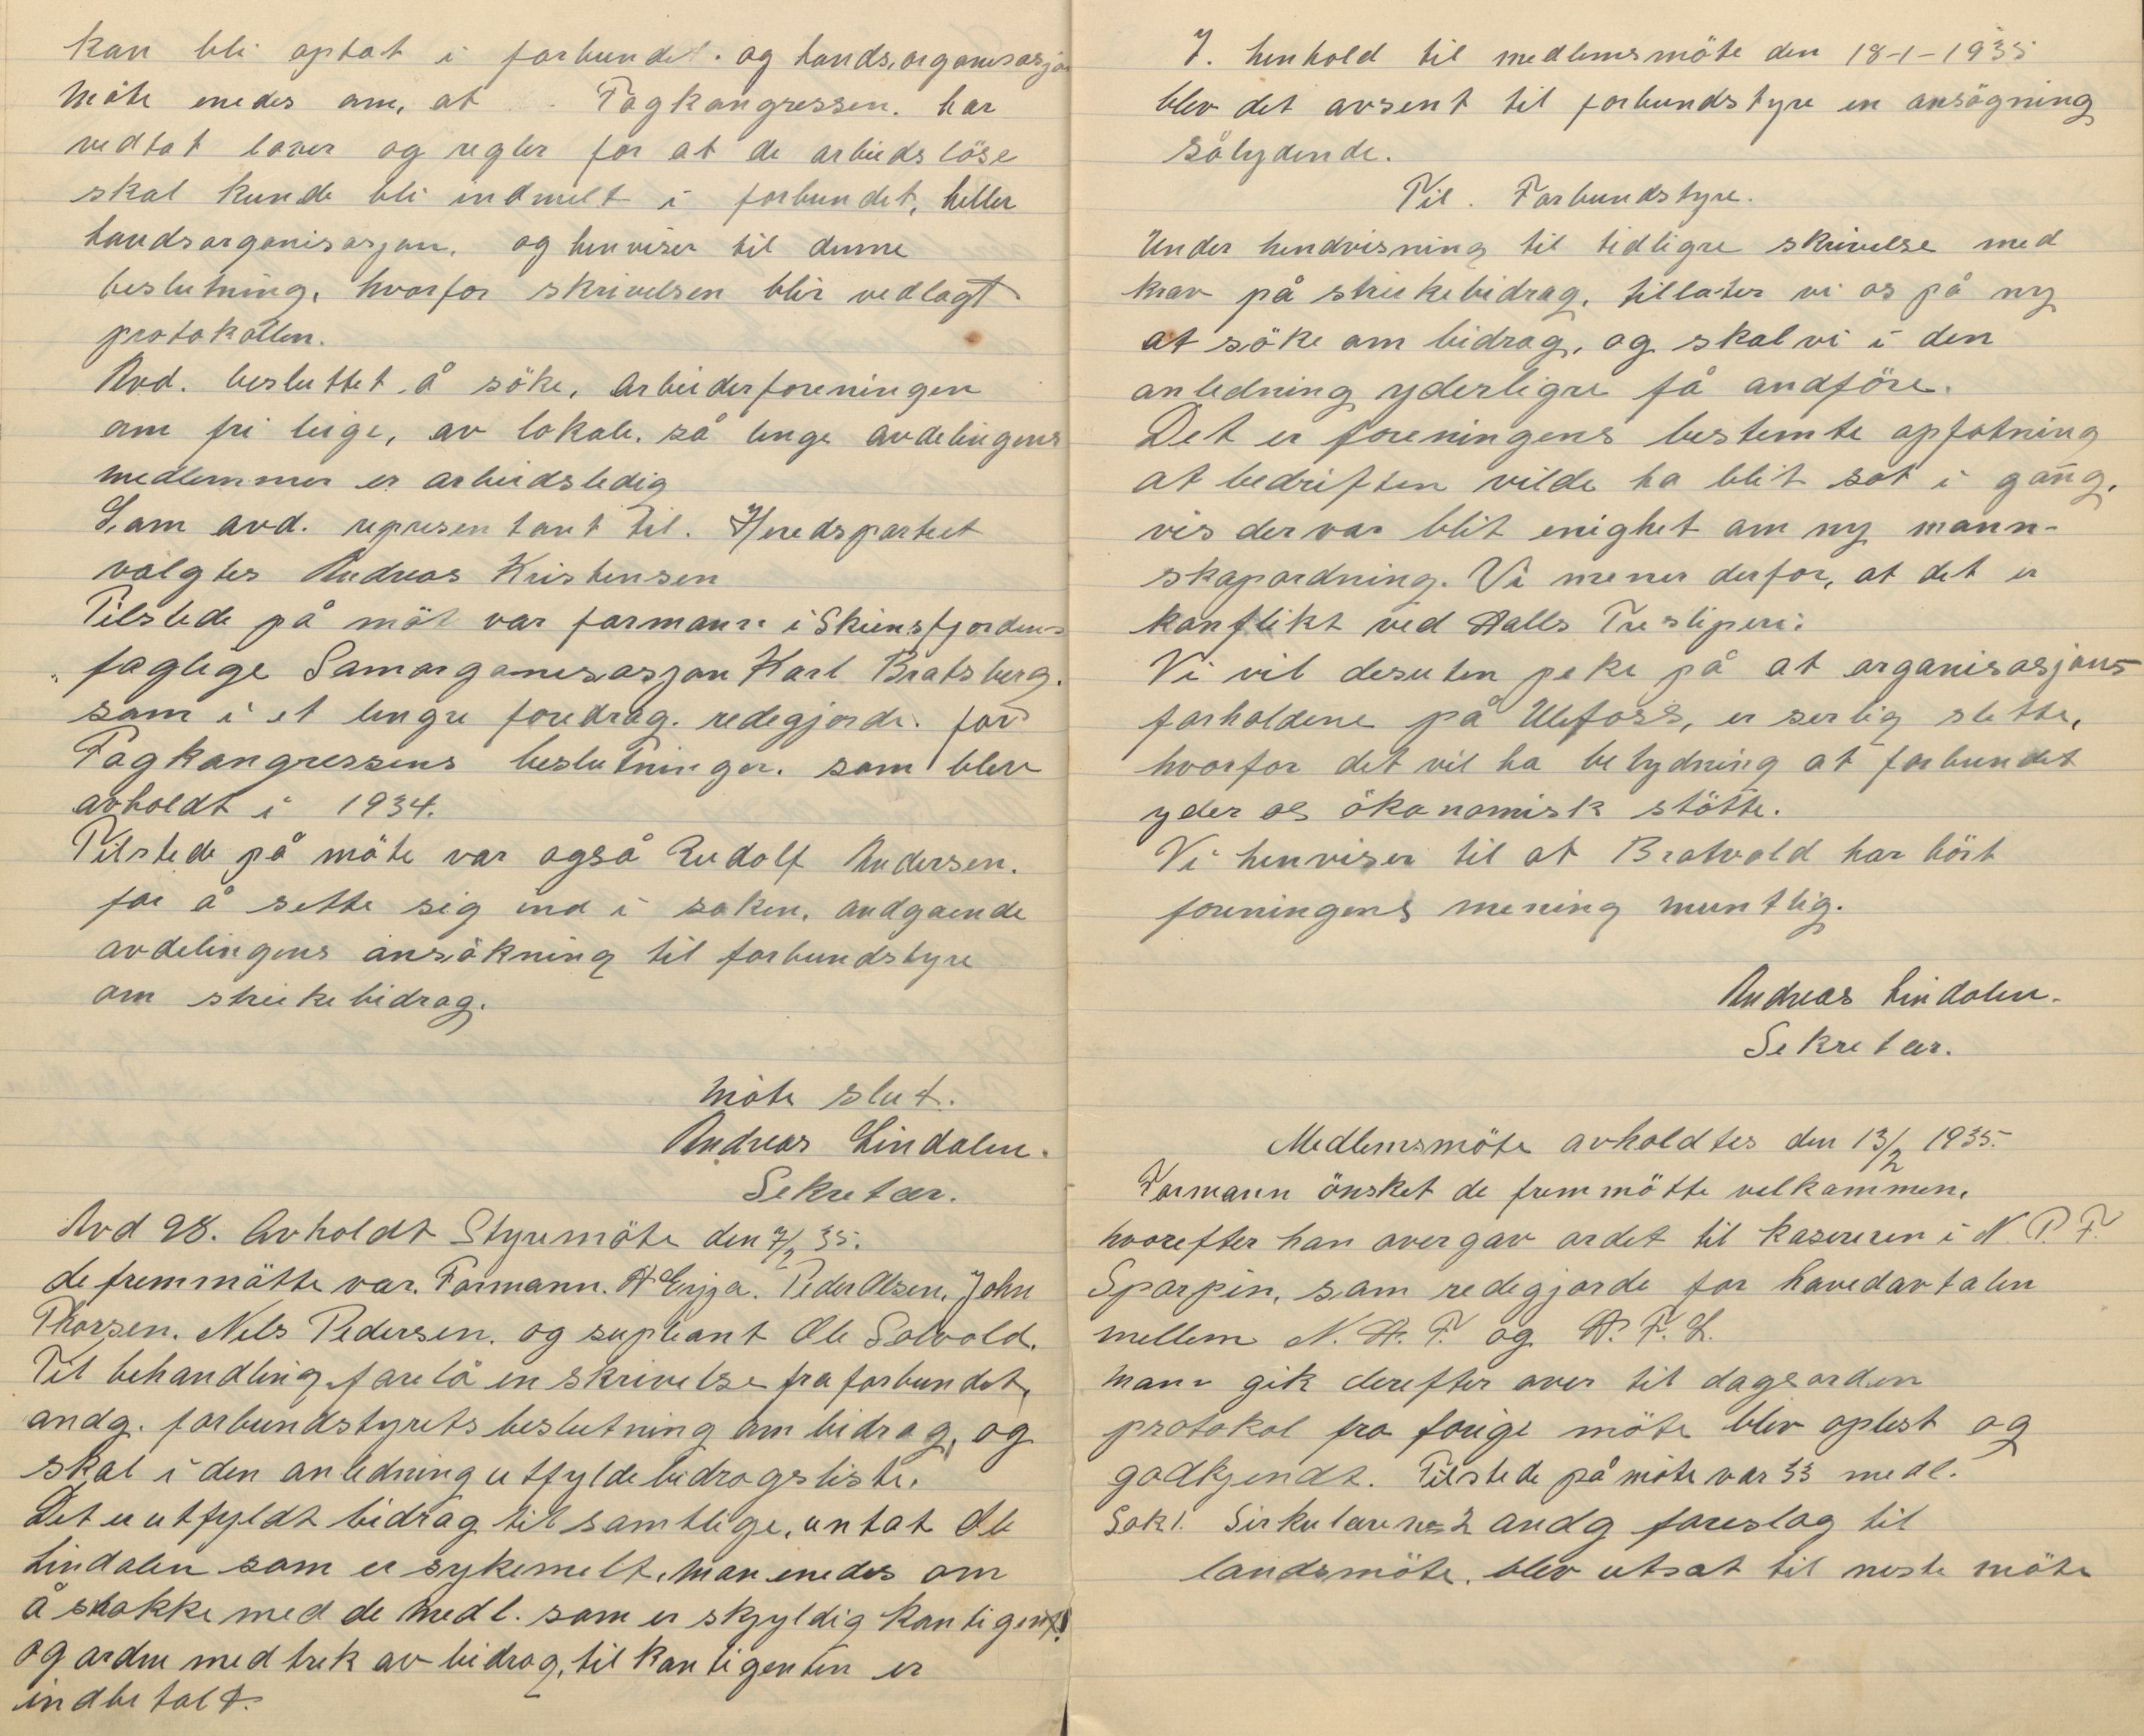 kan bli optat i forbundet. og landsorganisasjon
Møte enedes om, at Fagkongressen. har
vedtat lover og regler for at de arbeidsløse
skal kunde bli indmelt i forbundet, heller
landsorganisasjon, og henviser til denne
beslutning, hvorfor skrivelsen blir vedlagt
protokollen.
Avd. besluttet å söke, Arbeiderforeningen
om fri leige, av lokale. så lenge avdelingens
medlemmer er arbeidsledig
Som avd. representant til. Heredspartiet
valgtes Andreas Kristensen
Tilstede på möt var formann i Skiensfjordens
faglige Samorganisasjon Karl Bratsberg.
som i et lengre foredrag. redegjorde. for
Fagkongressens beslutninger. som blev
avholdt i 1934.
Tilstede på möte var også Rudolf Andersen.
for å sette sig ind i saken, andgaende
avdelingens ansökning til forbundstyre
om streikebidrag.
Möte slut.
Andreas Lindalen.
Sekretær.
Avd 98. Avholdt Styremöte den 7/2 35.
de fremmötte var. Formann. A Enjja. Peder Olsen. John
Thorsen. Nels Pedersen. og supleant Ole Solvold.
Til behandling forelå en skrivelse fra forbundet,
andg. forbundstyrets beslutning om bidrag, og
skal i den anledning utfylde bidragsliste.
Det er utfyldt bidrag til samtlige, untat Ole
Lindalen som er sykemelt. Man enedes om
å snakke med de medl. som er skjyldig kontigent!
og ordne med trek av bidrag, til kontigenten er
indbetalt.
I. henhold til medlemsmöte den 18-1-1935
blev det avsent til forbundstyre en ansögning
sålydende.
Til. Forbundstyre.
Under hendvisning til tidligre skrivelse med
krav på streikebidrag, tillater vi os på ny
at söke om bidrag, og skal vi i den
anledning yderligre få andföre.
Det er foreningens bestemte opfatning
at bedriften vilde ha blit sat i gang,
vis der var blit enighet om ny mann-
skapordning. Vi mener derfor, at det er
konflikt ved Halls Tresliperi.
Vi vil desuten peke på at organisasjons-
forholdene på Ulefoss, er serlig slette,
hvorfor det vil ha betydning at forbundet
yder os ökonomisk stötte.
Vi henviser til at Bratvold har hört
foreningens mening muntlig.
Andreas Lindalen.
Sekretær.
Medlemsmöte avholdtes den 13/2 1935.
Formann önsket de fremmötte velkommen,
hvorefter han overgav ordet til kasereren i N. P. F.
Sparpin, som redegjorde for hovedavtalen
mellem N. A. F. og A. F. L.
Mann gik derefter over til dagsorden
protokol fra forige möte blev oplest og
godkjendt. Tilstede på möte var 33 medl.
Sak 1. Sirkulære no 2 andg foreslag til
landsmöte, blev utsat til neste möte